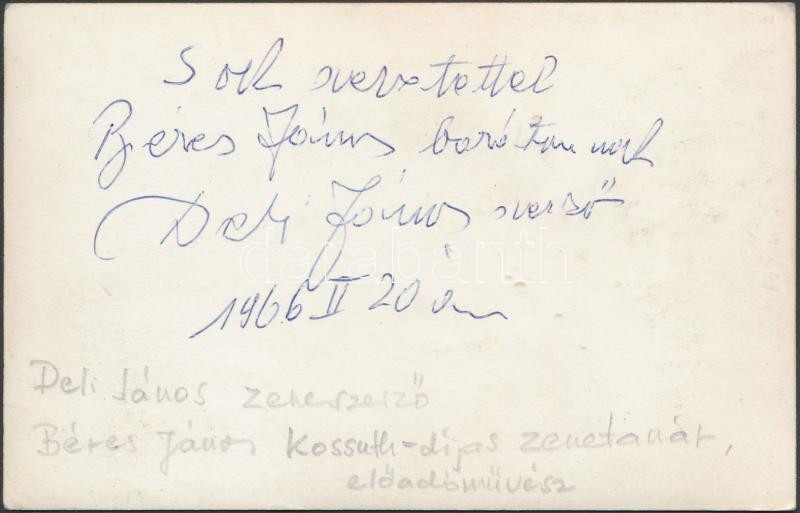 Sok szeretettel
Béres János barátomnak
Deli János szerző
1966 II 20 án
darabanth
Deli János zeneszerző
Béres János Kossuth-díjas zenetanár,
előadóművész